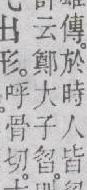 傳。於時人皆
云鄭大子曶。
出形。呼骨切。